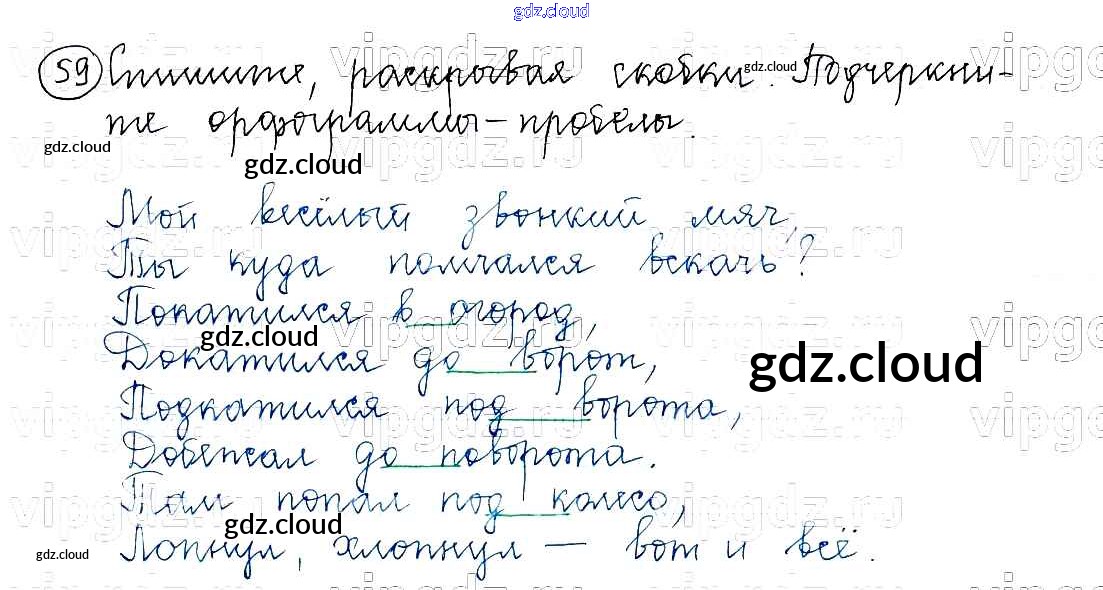 gdz.cloud
59 Спишите, раскрывая скобки. Подчеркни-
те орфограммы-пробелы.
Мой весёлый звонкий мяч,
Ты куда помчался вскачь?
Покатился в огород,
Докатился до ворот,
Подкатился под ворота,
Добежал до поворота.
Там попал под колесо,
Лопнул, хлопнул — вот и всё.
gdz.cloud
gdz.cloud
gdz.cloud
gdz.cloud
gdz.cloud
gdz.cloud
gdz.cloud
vipgdz.ru